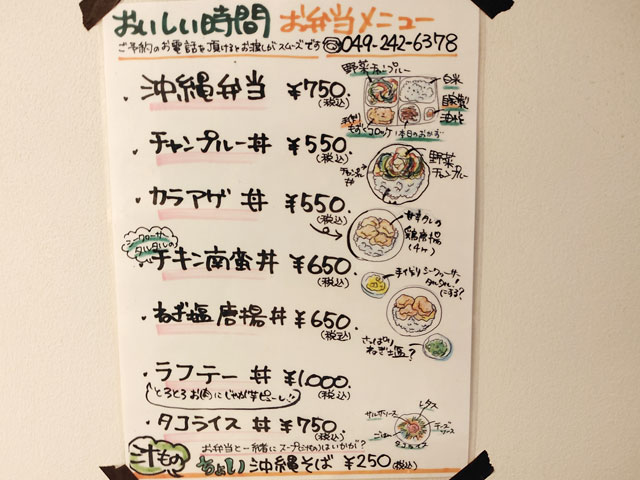 おいしい時間 お弁当メニュー
ご予約のお電話を頂けるとお渡しがスムーズです ☎049-242-6378
・沖縄弁当 ¥750.(税込)
野菜チャンプルー
白米
自家製
手作り
もずくコロッケ
本日のおかず
・チャンプルー丼 ¥550.(税込)
野菜チャンプルー
・カラアゲ丼 ¥550.(税込)
甘辛タレの鶏唐揚(4ヶ)
シークヮーサータルタルの
・チキン南蛮丼 ¥650.(税込)
手作りシークヮーサータルタル!にする?
・ねぎ塩唐揚丼 ¥650.(税込)
さっぱりねぎ塩?
・ラフテー丼 ¥1,000.(税込)
とろとろお肉にじゃがピューレ!!
・タコライス丼 ¥750.(税込)
レタス
サルサソース
チーズソース
ごはん
タコライス
お弁当と一緒にスープ(汁もの)はいかが?
汁もの
ちょい沖縄そば ¥250(税込)